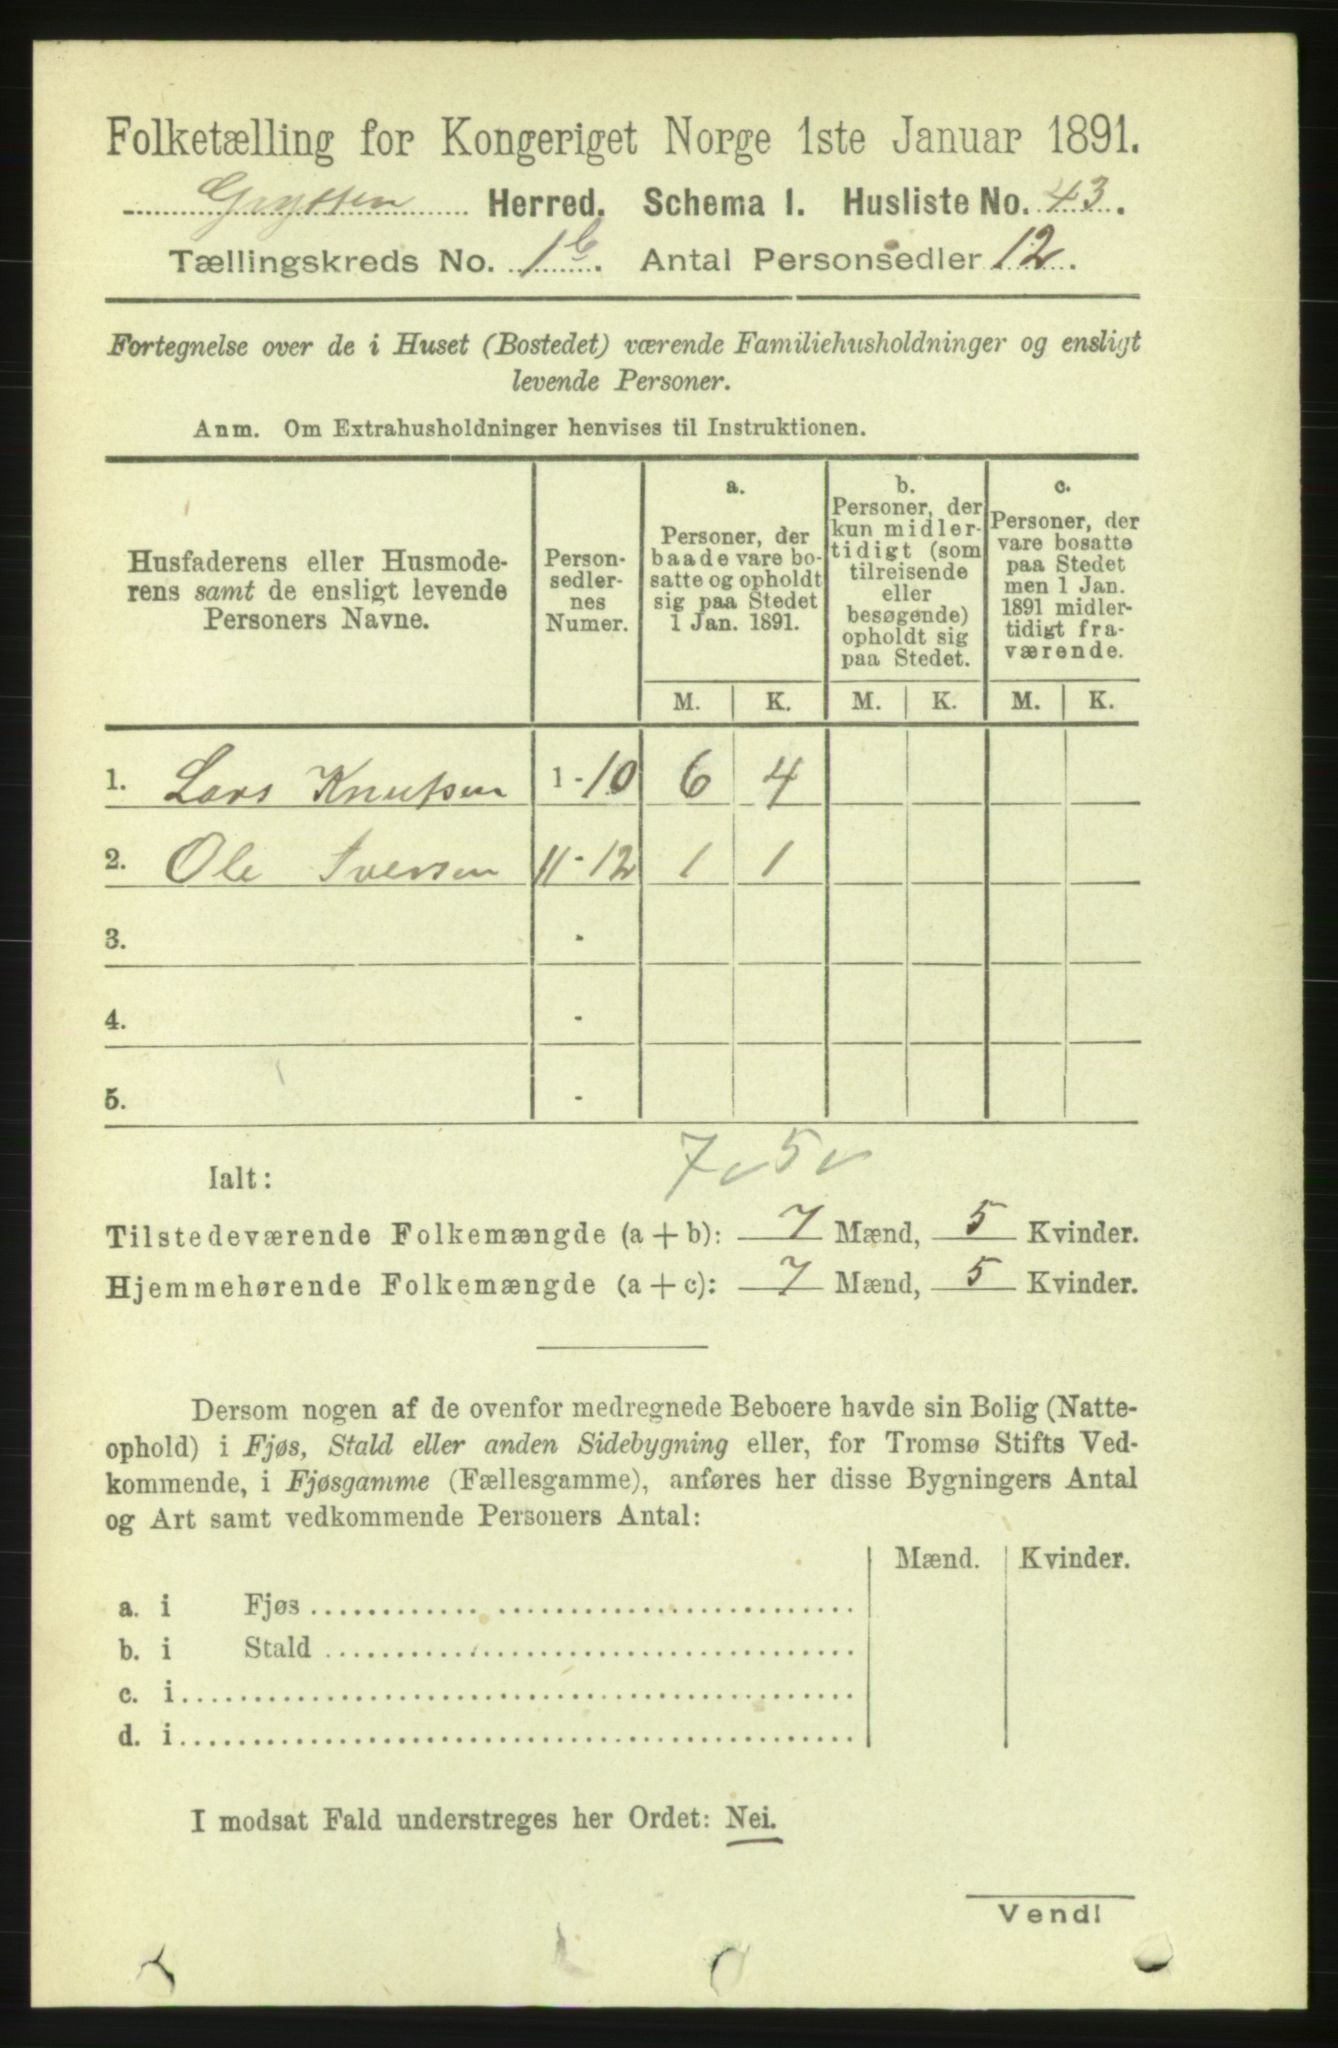 Folketælling for Kongeriget Norge 1ste Januar 1891.
Gryten Herred. Schema 1. Husliste No. 43.
Tællingskreds No. 1b. Antal Personsedler 12.
Fortegnelse over de i Huset (Bostedet) værende Familiehusholdninger og ensligt
levende Personer.
Anm. Om Extrahusholdninger henvises til Instruktionen.
Husfaderens eller Husmode-
rens samt de ensligt levende
Personers Navne.
Person-
sedler-
nes
Numer.
a.
Personer, der
baade vare bo-
satte og opholdt
sig paa Stedet
1 Jan. 1891.
b.
Personer, der
kun midler-
tidigt (som
tilreisende
eller
besøgende)
opholdt sig
paa Stedet.
c.
Personer, der
vare bosatte
paa Stedet
men 1 Jan.
1891 midler-
tidigt fra-
værende.
M. K. M. K. M. K.
1. Lars Knutsen 1-10 6 4
2. Ole Iversen 11-12 1 1
3. -
4. -
5. -
7 5
Ialt:
Tilstedeværende Folkemængde (a + b): 7 Mænd, 5 Kvinder.
Hjemmehørende Folkemængde (a + c): 7 Mænd, 5 Kvinder.
Dersom nogen af de ovenfor medregnede Beboere havde sin Bolig (Natte-
ophold) i Fjøs, Stald eller anden Sidebygning eller, for Tromsø Stifts Ved-
kommende, i Fjøsgamme (Fællesgamme), anføres her disse Bygningers Antal
og Art samt vedkommende Personers Antal:
Mænd. Kvinder.
a. i Fjøs
b. i Stald
c. i
d. i
I modsat Fald understreges her Ordet: Nei.
Vend!